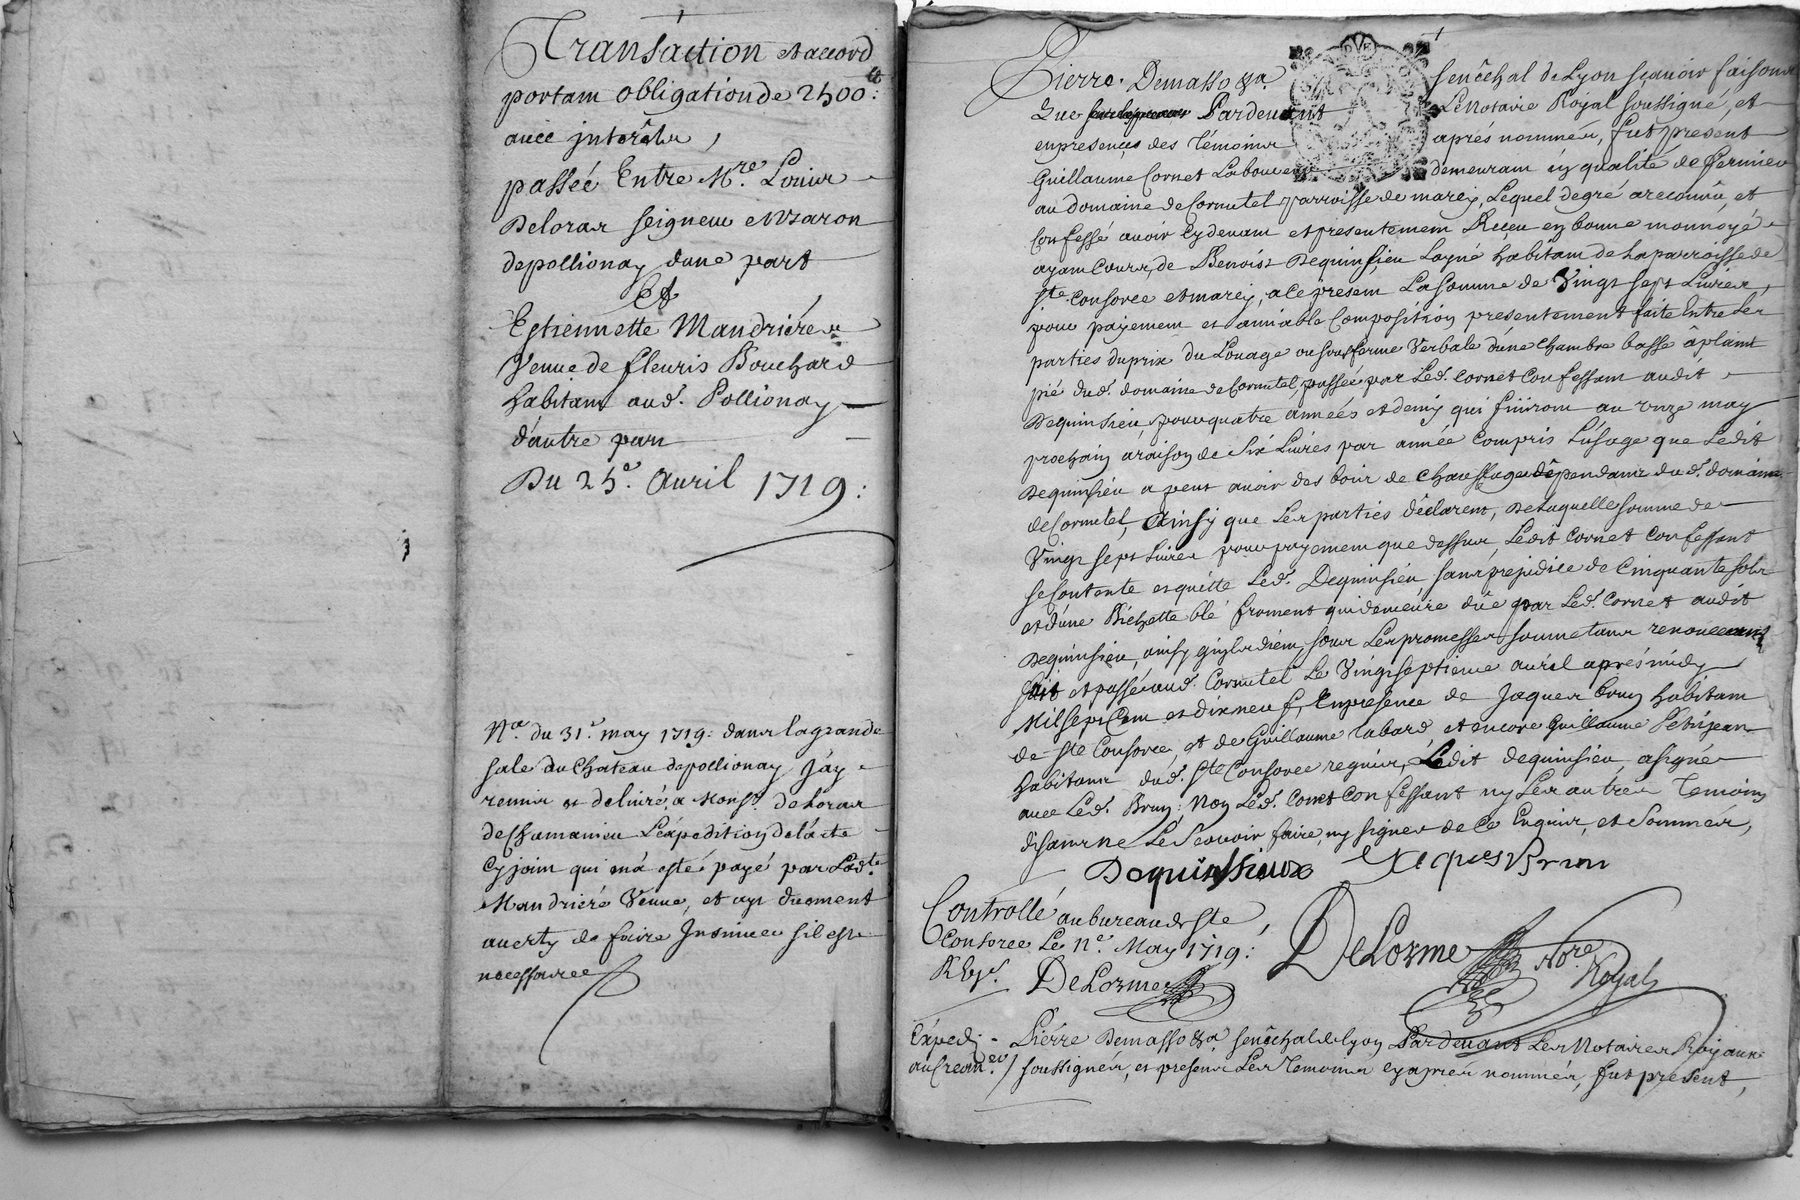 Transaction et accord
portant obligation de 2500 ₶:
avec interêts,
passée Entre Mre. Louis
Deloras seigneur et Baron
de pollionay d'une part
Et
Estiennette Mandriére
Veuve de fleuris Bouchard
habitant aud. Pollionay
d'autre part
Du 25e. Avril 1719:
Na. du 31e. may 1719: dans la grande
sale du Chateau de pollionay J'ay
remis et delivré a Monsr. de Loras
de Chamanieu L'expedition de l'acte
Cy joint qui m'a esté payé par Ladte.
Mandriére Veuve, et ay duement
averty de faire Insinuer s'il est
necessaire
Pierre Demasso &a. senêchal de Lyon sçavoir faisons
Que Pardevant Le Notaire Royal soussigné, et
en presences des Témoins aprés nommés, fut present
Guillaume Cornet Laboureur demeurant en qualité de fermier
au domaine de Cornutel parroisse de marcy, Lequel de gré a reconnu, et
Confessé avoir Cy devant et presentement Reçeu en bonne monnoyé
ayant Cours, de Benoist Dequinsieu Layné habitant de la parroisse de
Ste. Consorce et marcy, a Ce present La somme de Vingt sept Livres,
pour payement et amiable Composition presentement faite Entre Les
parties du prix du Louage ou sousferme Verbale d'une Chambre basse à plaint
pié dud. domaine de Cornutel passée par Led. Cornet Confessant audit
Dequinsieu, pour quatre années et demy qui finiront au onze may
prochain a raison de Six Livres par année Compris L'usage que Ledit
Dequinsieu a peut avoir des bois de Chauffage dêpendants dud. domaine
de Cornutel, Ainsy que Les parties dêclarent, De Laquelle somme de
Vingt sept Livres pour payement que dessus, Ledit Cornet Confessant
se Contente et quitte Led. Dequinsieu sans prejudice de Cinquante sols
et d'une Bichette blé froment qui demeure dûe par Led. Cornet audit
Dequinsieu, ainsy qu'ils disent, sous Les promesses soumetans renonceant
fait et passé aud. Cornutel Le Vingt septieme avril aprés midy
Mil sept Cent et dix neuf, En presence de Jaques Brun habitant
de Ste Consorce, et de Guillaume Cabard, et encore Guillaume Petitjean
habitans dud. Ste Consorce requis, Ledit dequinsieu, a signé
avec Led. Brun; Non Led. Cornet Confessant ny Les autres Temoins
disants ne Le Scavoir faire, ny signer de Ce Enquis, et Sommés,
Dequinsieux Jacques Brun
Controllé au bureau de Ste
Consorce Le ne. May 1719:
DeLorme
DeLorme Nore. Royal
Expedi. au Crean.er
Pierre Demasso &a senêchal de Lyon Pardevant Les Notaires Royaux
soussignés, et presens Les Temoins cy aprés nommés, fut present,